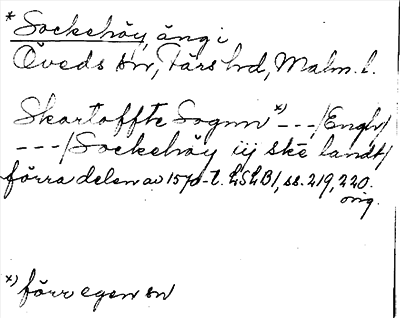 * Sockehöy, äng i
Öveds sn, Färs hd, Malm. l.
Skartoffte Sognn *) - - - /Engh/
- - - / Sockehöy iij ske landt/
förra delen av 1570-t. LSLB1, ss. 219, 220.
orig.
*) förr egen sn